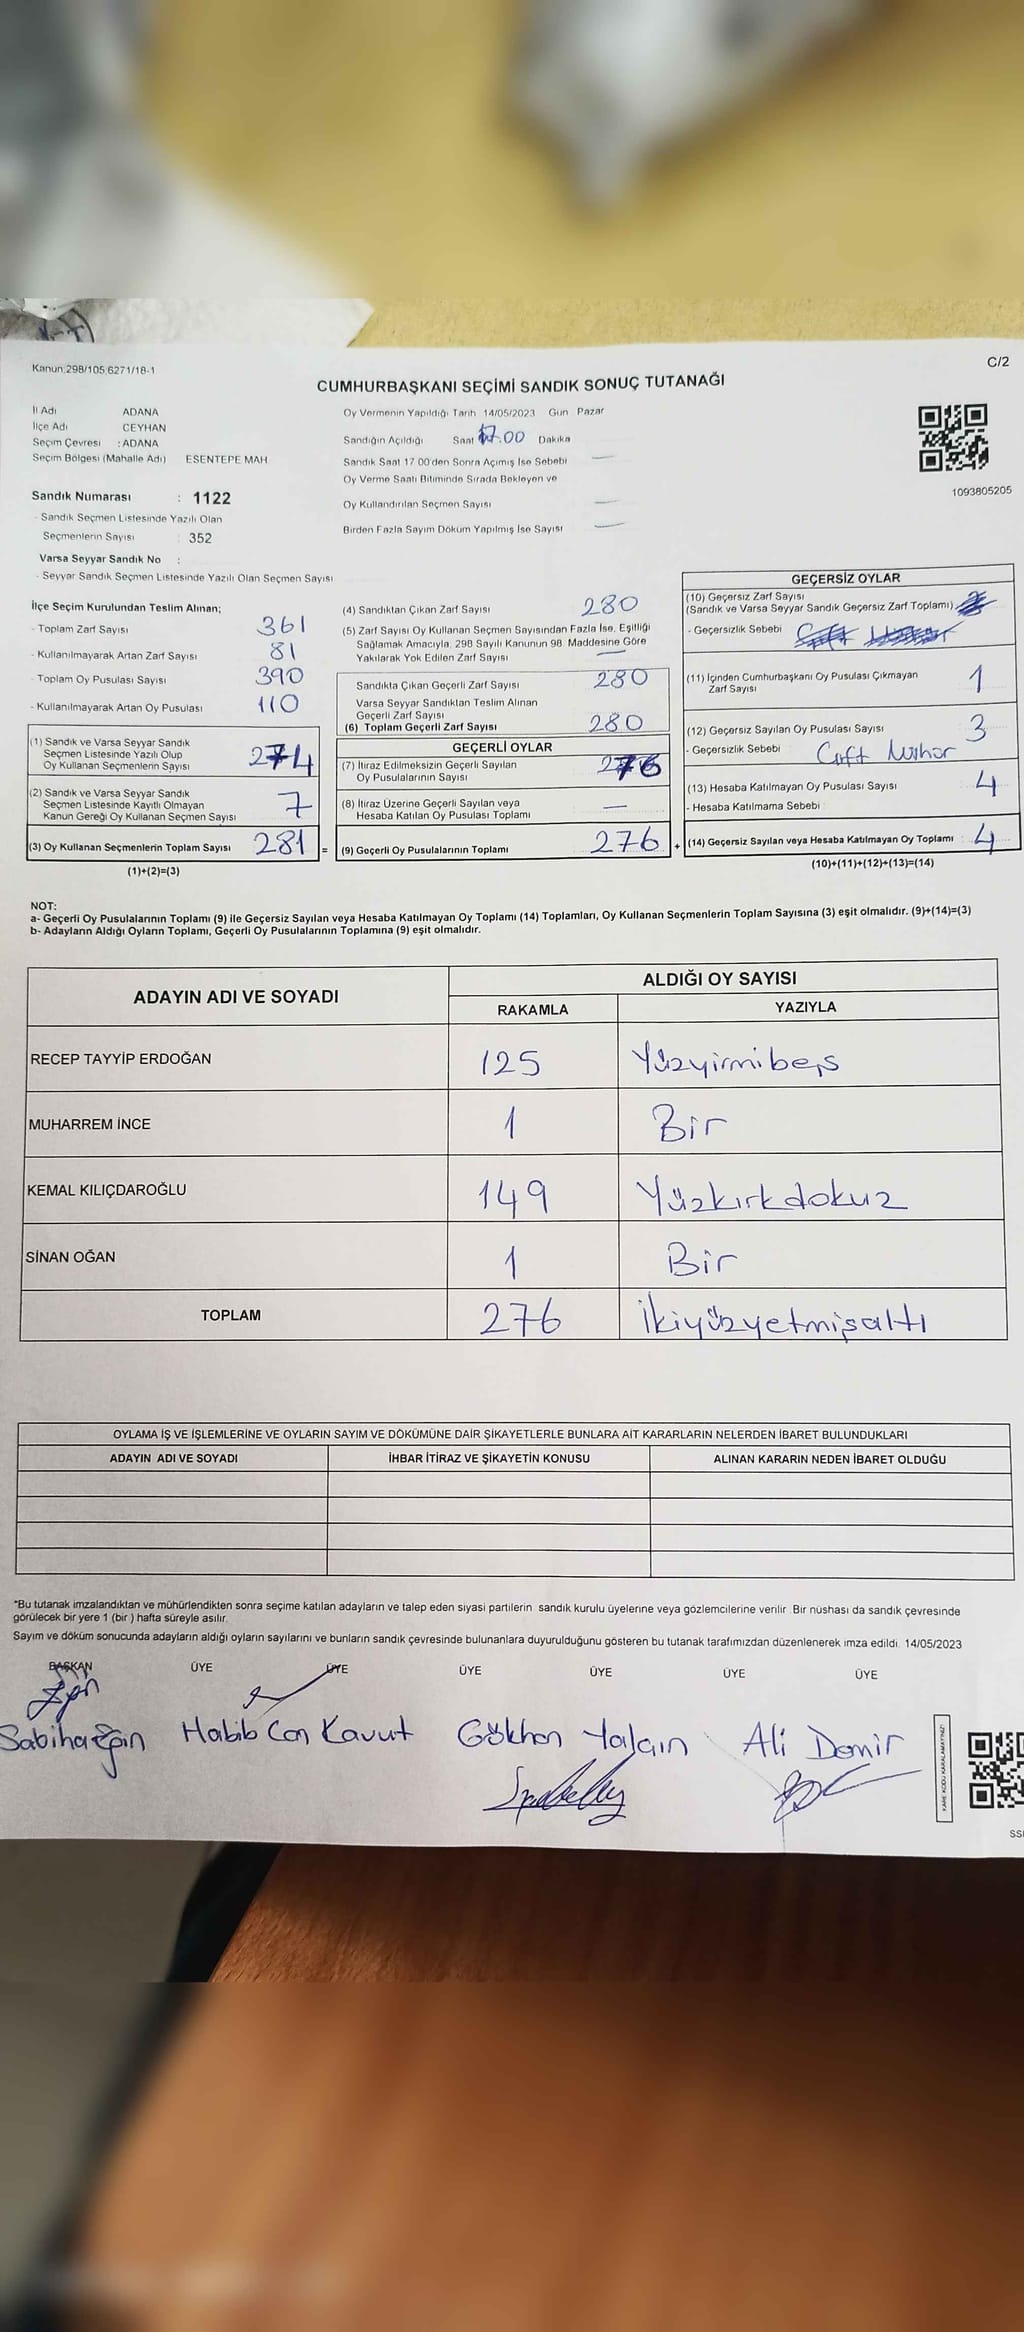 Kanun:298/105,6271/18-1
C/2
CUMHURBAŞKANI SEÇİMİ SANDIK SONUÇ TUTANAĞI
İl Adı ADANA
İlçe Adı CEYHAN
Seçim Çevresi : ADANA
Seçim Bölgesi (Mahalle Adı) ESENTEPE MAH
Sandık Numarası : 1122
- Sandık Seçmen Listesinde Yazılı Olan
Seçmenlerin Sayısı : 352
Varsa Seyyar Sandık No :
- Seyyar Sandık Seçmen Listesinde Yazılı Olan Seçmen Sayısı
Oy Vermenin Yapıldığı Tarih 14/05/2023 Gün Pazar
Sandığın Açıldığı Saat 17.00 Dakika
Sandık Saat 17 00'den Sonra Açımış İse Sebebi —
Oy Verme Saati Bitiminde Sırada Bekleyen ve
Oy Kullandırılan Seçmen Sayısı —
Birden Fazla Sayım Döküm Yapılmış İse Sayısı —
1093805205
İlçe Seçim Kurulundan Teslim Alınan;
- Toplam Zarf Sayısı 361
- Kullanılmayarak Artan Zarf Sayısı 81
- Toplam Oy Pusulası Sayısı 390
- Kullanılmayarak Artan Oy Pusulası 110
(1) Sandık ve Varsa Seyyar Sandık
Seçmen Listesinde Yazılı Olup
Oy Kullanan Seçmenlerin Sayısı 274
(2) Sandık ve Varsa Seyyar Sandık
Seçmen Listesinde Kayıtlı Olmayan
Kanun Gereği Oy Kullanan Seçmen Sayısı 7
(3) Oy Kullanan Seçmenlerin Toplam Sayısı 281 =
(1)+(2)=(3)
(4) Sandıktan Çıkan Zarf Sayısı 280
(5) Zarf Sayısı Oy Kullanan Seçmen Sayısından Fazla İse, Eşitliği
Sağlamak Amacıyla, 298 Sayılı Kanunun 98 Maddesine Göre
Yakılarak Yok Edilen Zarf Sayısı —
Sandıkta Çıkan Geçerli Zarf Sayısı 280
Varsa Seyyar Sandıktan Teslim Alınan
Geçerli Zarf Sayısı
(6) Toplam Geçerli Zarf Sayısı 280
GEÇERLİ OYLAR
(7) İtiraz Edilmeksizin Geçerli Sayılan
Oy Pusulalarının Sayısı 276
(8) İtiraz Üzerine Geçerli Sayılan veya
Hesaba Katılan Oy Pusulası Toplamı —
(9) Geçerli Oy Pusulalarının Toplamı 276 +
GEÇERSİZ OYLAR
(10) Geçersiz Zarf Sayısı
(Sandık ve Varsa Seyyar Sandık Geçersiz Zarf Toplamı)
- Geçersizlik Sebebi
(11) İçinden Cumhurbaşkanı Oy Pusulası Çıkmayan
Zarf Sayısı 1
(12) Geçersiz Sayılan Oy Pusulası Sayısı 3
- Geçersizlik Sebebi Çift Mühür
(13) Hesaba Katılmayan Oy Pusulası Sayısı 4
- Hesaba Katılmama Sebebi :
(14) Geçersiz Sayılan veya Hesaba Katılmayan Oy Toplamı : 4
(10)+(11)+(12)+(13)=(14)
NOT:
a- Geçerli Oy Pusulalarının Toplamı (9) ile Geçersiz Sayılan veya Hesaba Katılmayan Oy Toplamı (14) Toplamları, Oy Kullanan Seçmenlerin Toplam Sayısına (3) eşit olmalıdır. (9)+(14)=(3)
b- Adayların Aldığı Oyların Toplamı, Geçerli Oy Pusulalarının Toplamına (9) eşit olmalıdır.
ADAYIN ADI VE SOYADI ALDIĞI OY SAYISI
RAKAMLA YAZIYLA
RECEP TAYYİP ERDOĞAN 125 Yüzyirmibeş
MUHARREM İNCE 1 Bir
KEMAL KILIÇDAROĞLU 149 Yüzkırkdokuz
SİNAN OĞAN 1 Bir
TOPLAM 276 İkiyüzyetmişaltı
OYLAMA İŞ VE İŞLEMLERİNE VE OYLARIN SAYIM VE DÖKÜMÜNE DAİR ŞİKAYETLERLE BUNLARA AİT KARARLARIN NELERDEN İBARET BULUNDUKLARI
ADAYIN ADI VE SOYADI İHBAR İTİRAZ VE ŞİKAYETİN KONUSU ALINAN KARARIN NEDEN İBARET OLDUĞU
*Bu tutanak imzalandıktan ve mühürlendikten sonra seçime katılan adayların ve talep eden siyasi partilerin sandık kurulu üyelerine veya gözlemcilerine verilir Bir nüshası da sandık çevresinde
görülecek bir yere 1 (bir ) hafta süreyle asılır.
Sayım ve döküm sonucunda adayların aldığı oyların sayılarını ve bunların sandık çevresinde bulunanlara duyurulduğunu gösteren bu tutanak tarafımızdan düzenlenerek imza edildi. 14/05/2023
BAŞKAN ÜYE ÜYE ÜYE ÜYE ÜYE ÜYE
Sabiha Habib Can Kavut Gökhan Yalçın Ali Demir
KARE KODU KARALAMAYINIZ!